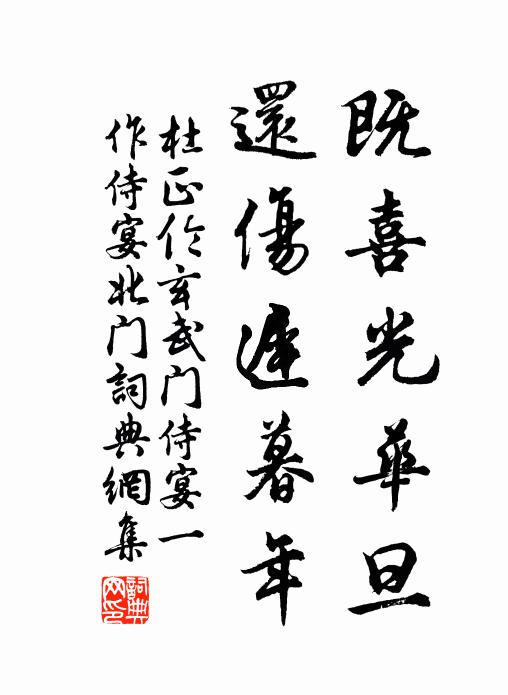 既喜光華旦
還傷遲暮年
杜正伦玄武门侍宴一
作侍宴北门詞典網集
詞典网印